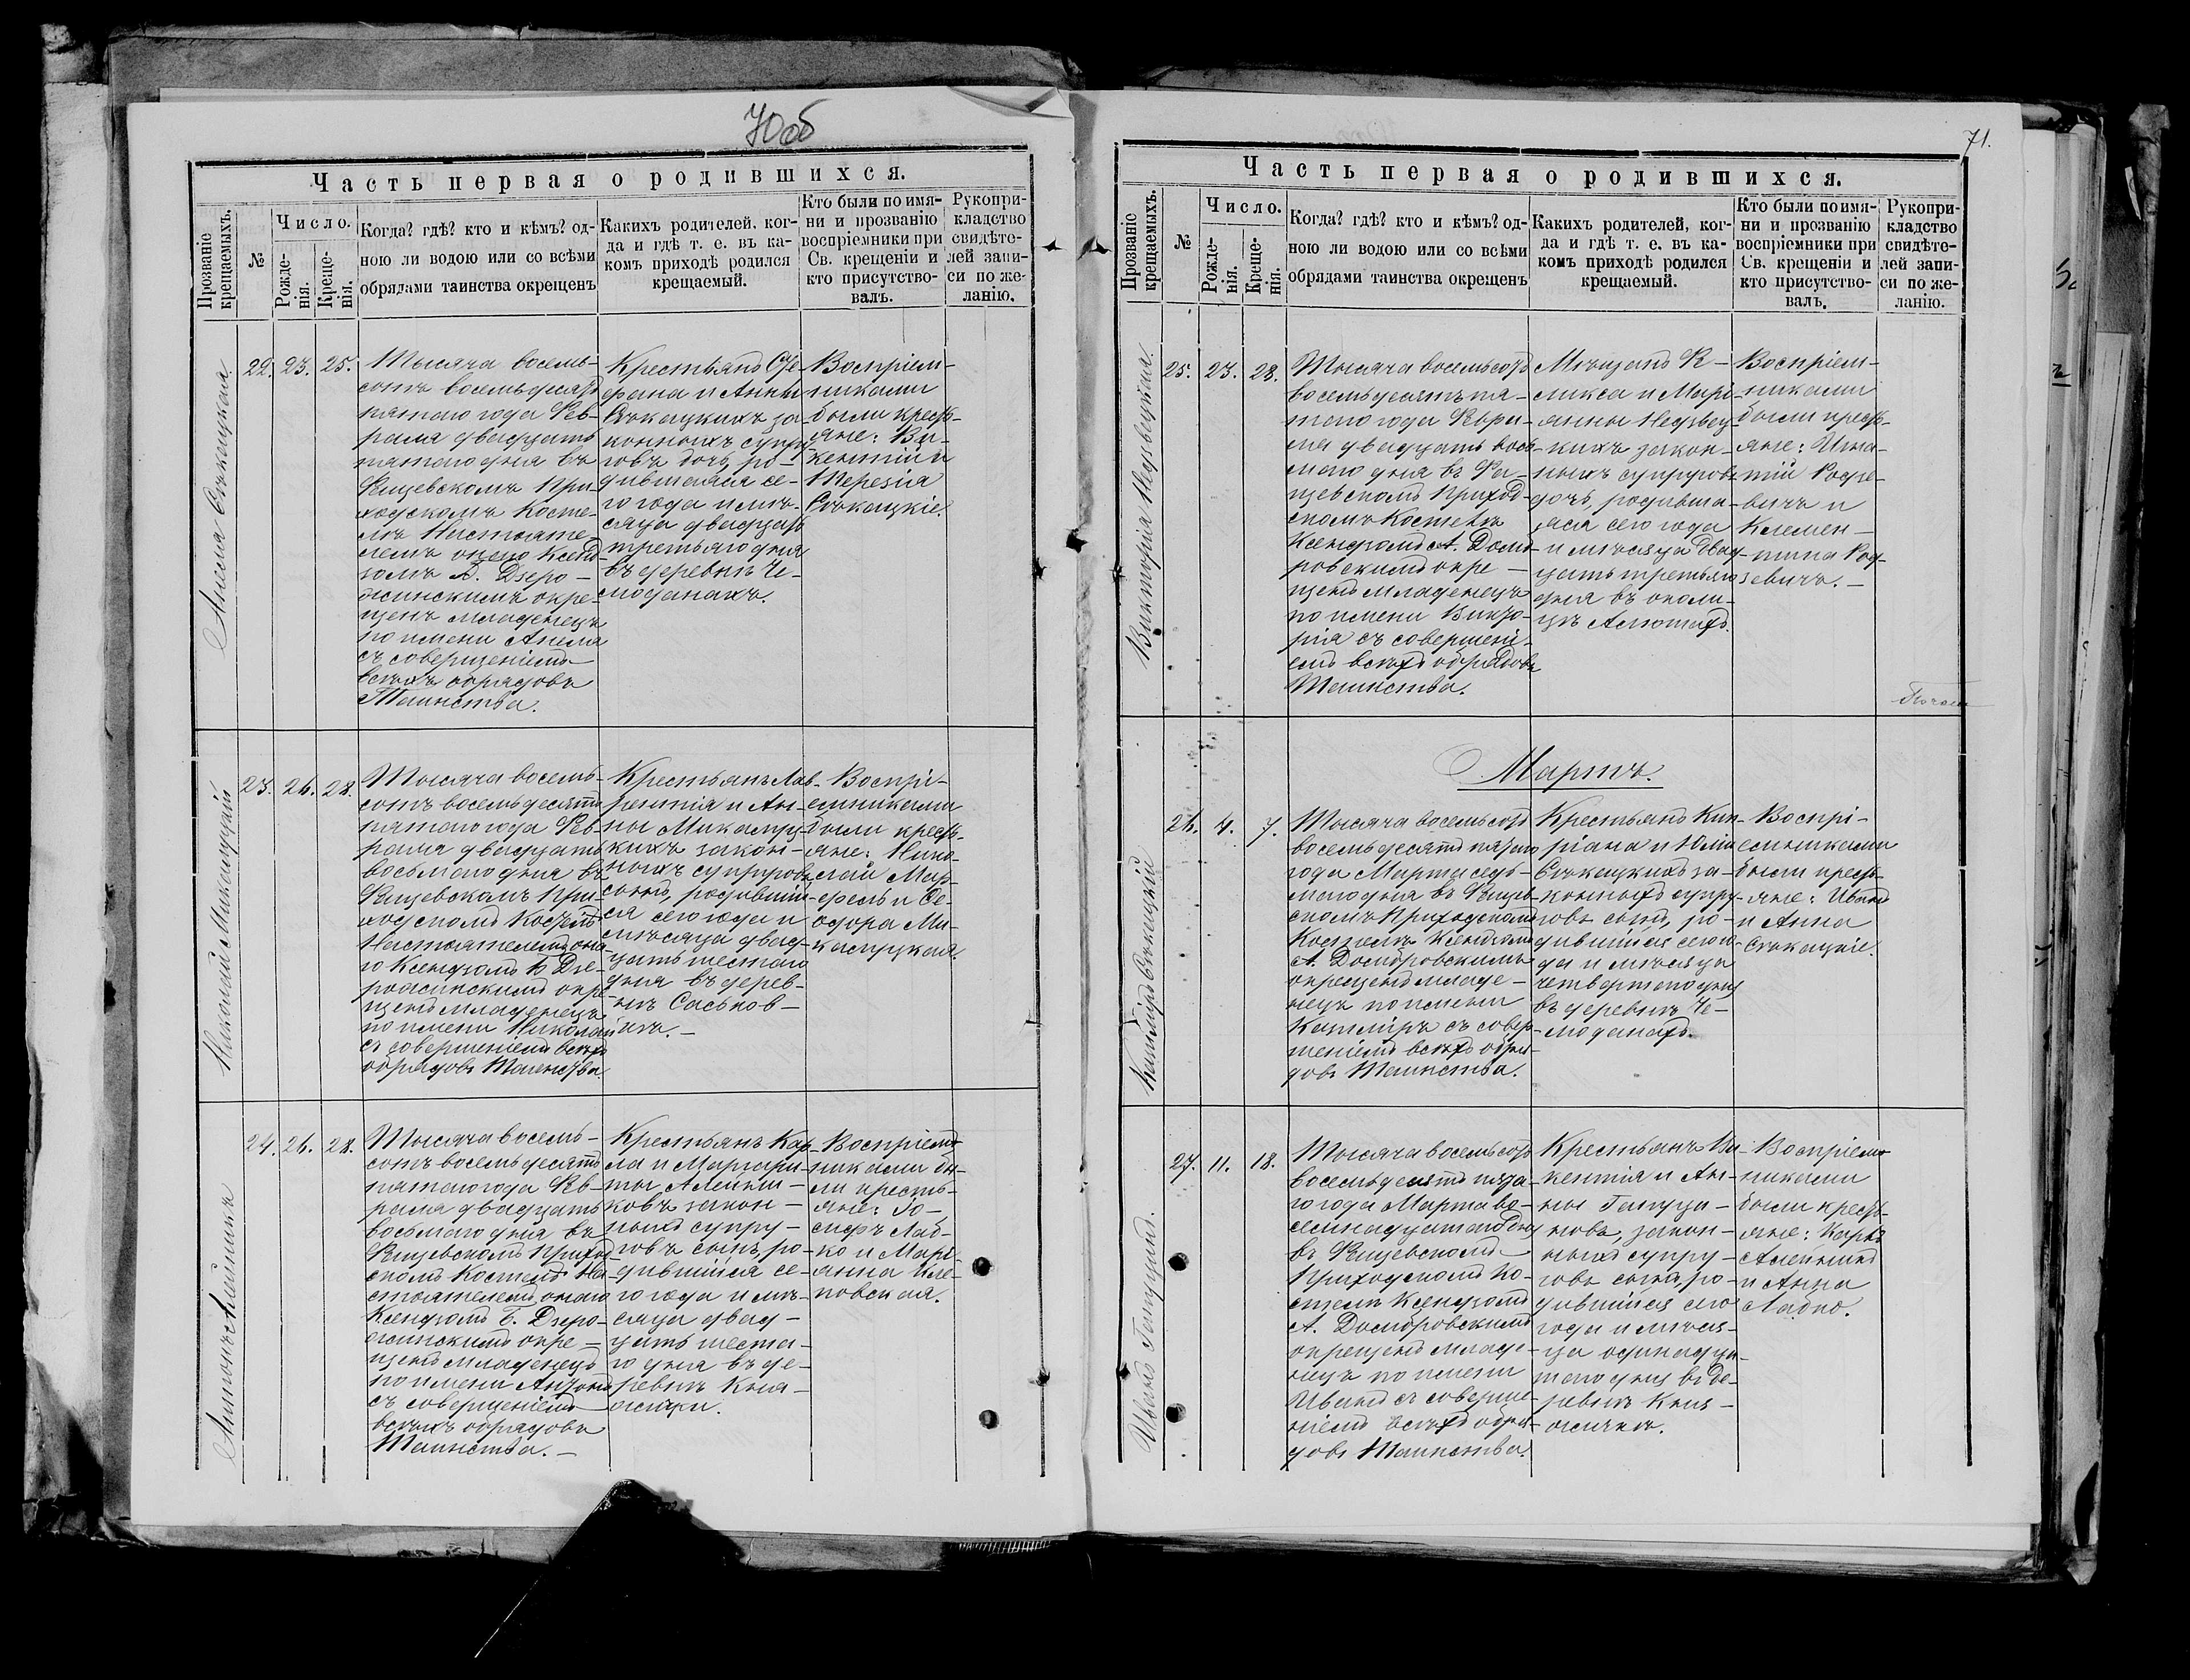 70об
Часть первая о родившихся.
Прозваніе крещаемыхъ.
№
Число.
Рожденія.
Крещенія.
Когда? гдѣ? кто и кѣмъ? од-
ною ли водою или со всѣми
обрядами таинства окрещенъ
Какихъ родителей, ког-
да и гдѣ т. е. въ ка-
комъ приходѣ родился
крещаемый.
Кто были по имя-
ни и прозванію
воспріемники при
Св. крещеніи и
кто присутство-
валъ.
Рукопри-
кладство
свидѣте-
лей запи-
си по же-
ланію.
22. 23. 25.
Тысяча восемь-
сотъ восемьдесятъ
пятаго года Фев-
раля двадцать
пятаго дня въ
При-
ходскомъ Косте-
лѣ Настояте-
лемъ онаго Ксенд-
зомъ Б. Дзеро-
жинскимъ окре-
щенъ младенецъ
по имени Анеля
съ совершеніемъ
всѣхъ обрядовъ
Таинства.
Крестьянъ Сте-
фана и Анны
за-
конныхъ супру-
говъ дочь, ро-
дившаяся се-
го года и мѣ-
сяца двадцать
третьяго дня
въ деревнѣ Че-
моданахъ.
Воспріем-
никами
были кресть-
яне: Ви-
кентій и
Терезія
Николай Микалуцкій
23. 26. 28.
Тысяча восемь-
сотъ восемьдесятъ
пятаго года Фев-
раля двадцать
восьмаго дня въ
При-
ходскомъ Костелѣ
Настоятелемъ она-
го Ксендзомъ Б. Дзе-
рожинскимъ окре-
щенъ младенецъ
по имени Николай
съ совершеніемъ всѣхъ
обрядовъ Таинства.
Крестьянъ Лав-
рентія и Ан-
ны Микалуц-
кихъ закон-
ныхъ супруговъ
сынъ, родивший-
ся сего года и
мѣсяца двад-
цать шестаго
дня въ дерев-
нѣ
Воспрі-
емниками
были кресть-
яне: Нико-
лай
и Ѳе-
одора Ми-
калуцкая.
Антонъ Алейникъ
24. 26. 28.
Тысяча восемь-
сотъ восемьдесятъ
пятаго года Фев-
раля двадцать
восьмаго дня въ
Приход-
скомъ Костелѣ На-
стоятелемъ онаго
Ксендзомъ Б. Дзеро-
жинскимъ окре-
щенъ младенецъ
по имени Антонъ
съ совершеніемъ
всѣхъ обрядовъ
Таинства.
Крестьянъ Кар-
ла и Маргари-
ты Алейни-
ковъ закон-
ныхъ супру-
говъ сынъ, ро-
дившійся се-
го года и мѣ-
сяца двад-
цать шеста-
го дня въ де-
ревнѣ Кня-
жицы.
Воспріем-
никами бы-
ли кресть-
яне: Іо-
сифъ Лад-
ко и Марі-
анна
71.
Часть первая о родившихся.
Прозваніе крещаемыхъ.
№
Число.
Рожденія.
Крещенія.
Когда? гдѣ? кто и кѣмъ? од-
ною ли водою или со всѣми
обрядами таинства окрещенъ
Какихъ родителей, ког-
да и гдѣ т. е. въ ка-
комъ приходѣ родился
крещаемый.
Кто были по имя-
ни и прозванію
воспріемники при
Св. крещеніи и
кто присутство-
валъ.
Рукопри-
кладство
свидѣте-
лей запи-
си по же-
ланію.
Викторія Недзвецкая.
25. 23. 28.
Тысяча восемьсотъ
восемьдесятъ пя-
таго года Февра-
ля двадцать вось-
маго дня въ
Приход-
скомъ Костелѣ
Ксендзомъ А. Домб-
ровскимъ окре-
щенъ младенецъ
по имени Викто-
рія съ совершені-
емъ всѣхъ обрядовъ
Таинства.
Мѣщанъ
и Марі-
анны Недзвец-
кихъ закон-
ныхъ супруговъ
дочь, родивша-
яся сего года
и мѣсяца двад-
цать третьяго
дня въ околи-
цѣ
Воспріем-
никами
были кресть-
яне: Игна-
тій Родзе-
вичъ и
Клемен-
тина Род-
зевичъ.
Мартъ.
26. 4. 7.
Тысяча восемьсотъ
восемьдесятъ пятаго
года Марта седь-
маго дня въ
Приходскомъ
Костелѣ Ксендзомъ
А. Домбровскимъ
окрещенъ младе-
нецъ по имени
Казиміръ съ совер-
шеніемъ всѣхъ обря-
довъ Таинства.
Крестьянъ Кип-
ріана и Юліи
за-
конныхъ супру-
говъ сынъ, ро-
дившійся сего го-
да и мѣсяца
четвертаго дня
въ деревнѣ Че-
моданахъ.
Воспрі-
емниками
были кресть-
яне: Иванъ
и Анна
27. 11. 18.
Тысяча восемьсотъ
восемьдесятъ пята-
го года Марта во-
семнадцатаго дня
въ
Приходскомъ Ко-
стелѣ Ксендзомъ
А. Домбровскимъ
окрещенъ младе-
нецъ по имени
Иванъ съ соверше-
ніемъ всѣхъ обря-
довъ Таинства.
Крестьянъ Ви-
кентія и Ан-
ны
закон-
ныхъ супру-
говъ сынъ, ро-
дившійся сего
года и мѣся-
ца одинадца-
таго дня въ де-
ревнѣ Кня-
жичкѣ.
Воспріем-
никами
были кресть-
яне: Карлъ
Алейникъ
и Анна
Ладко.